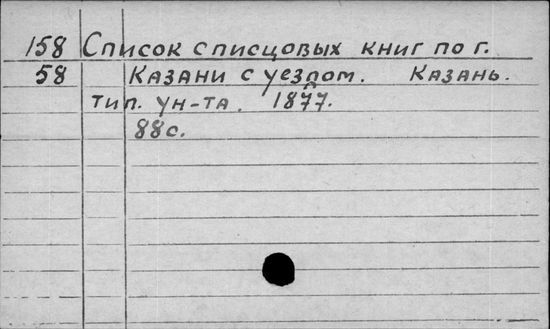 158 Список списцовых книг по г.
58 Казани с уездом. Казань.
тип. ун-та. 1877.
88с.